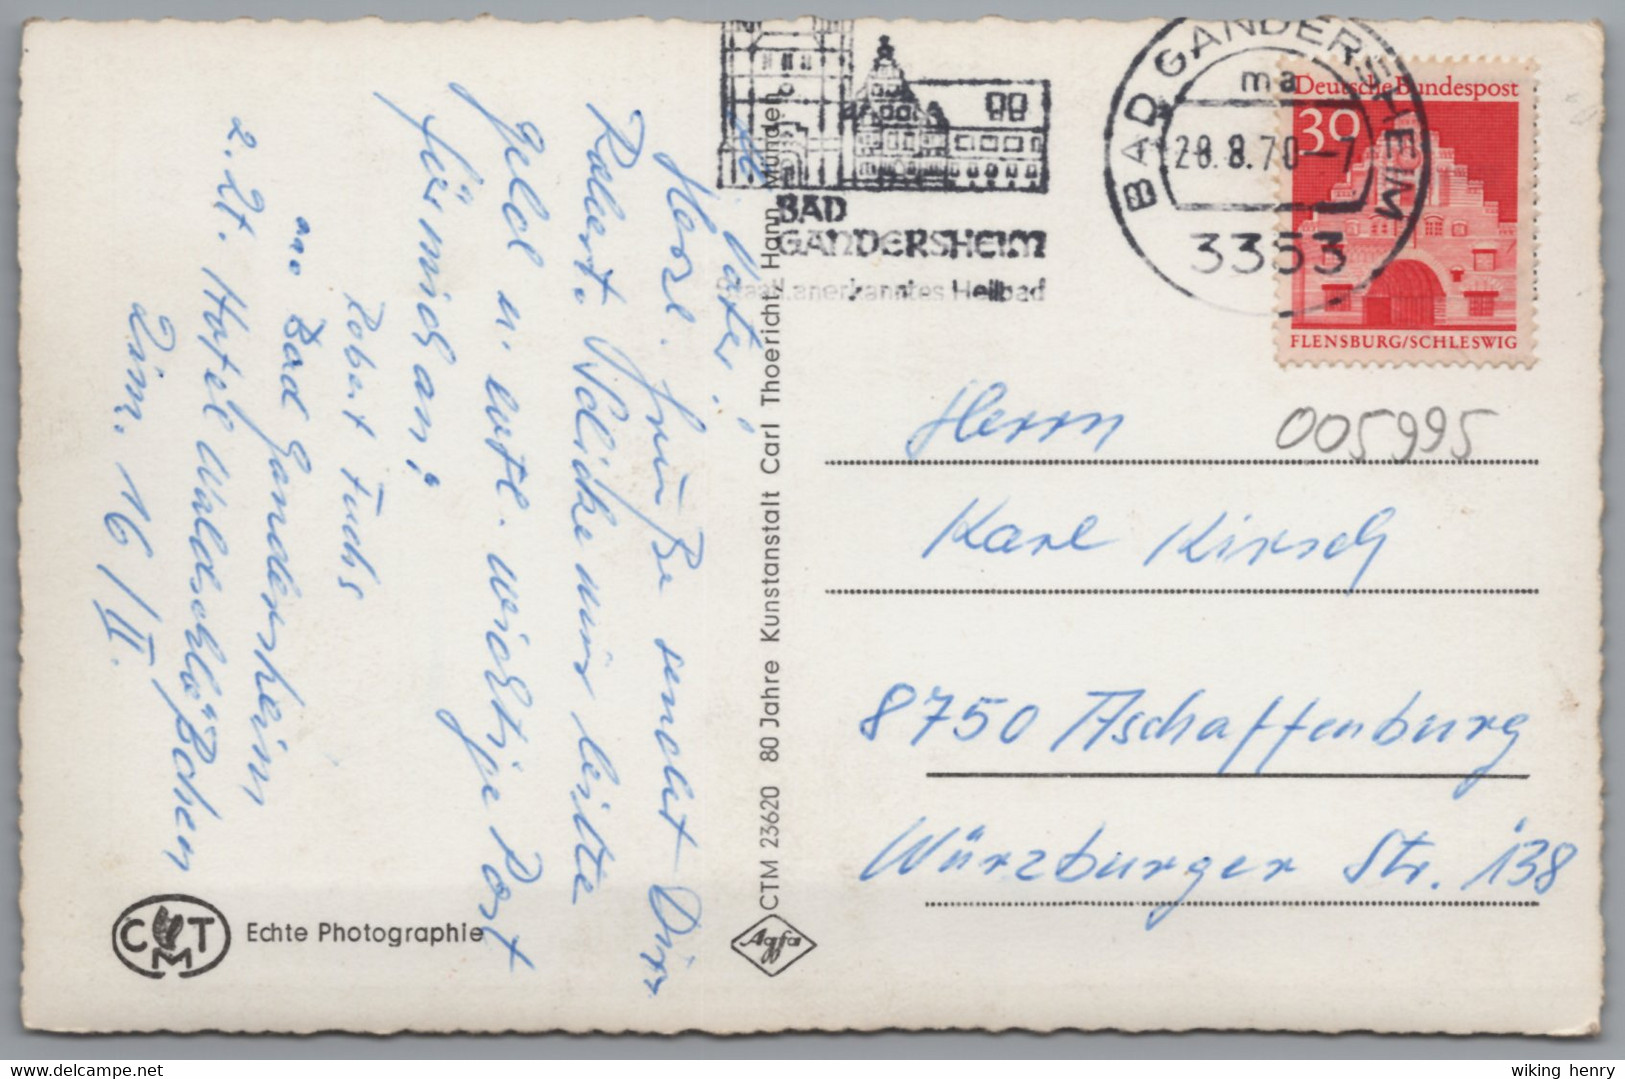 BAD
GANDERSHEIM
Staatl. anerkanntes Heilbad
BAD GANDERSHEIM
ma
28.8.70-7
3353
Deutsche Bundespost
30
FLENSBURG/SCHLESWIG
005995
Herrn
Karl Kirsch
8750 Aschaffenburg
Würzburger Str. 138
Vater!
Herzl. Grüße sendet Dir
Robert. Schicke mir bitte
Geld u. evtl. wichtige Post
für mich an:
Robert Fuchs
in Bad Gandersheim
z. Zt. Hotel Waldschlößchen
Zim. 16/II.
CTM 23620 80 Jahre Kunstanstalt Carl Thoericht, Hann. Münden
CTM
Echte Photographie
Agfa
wiking henry